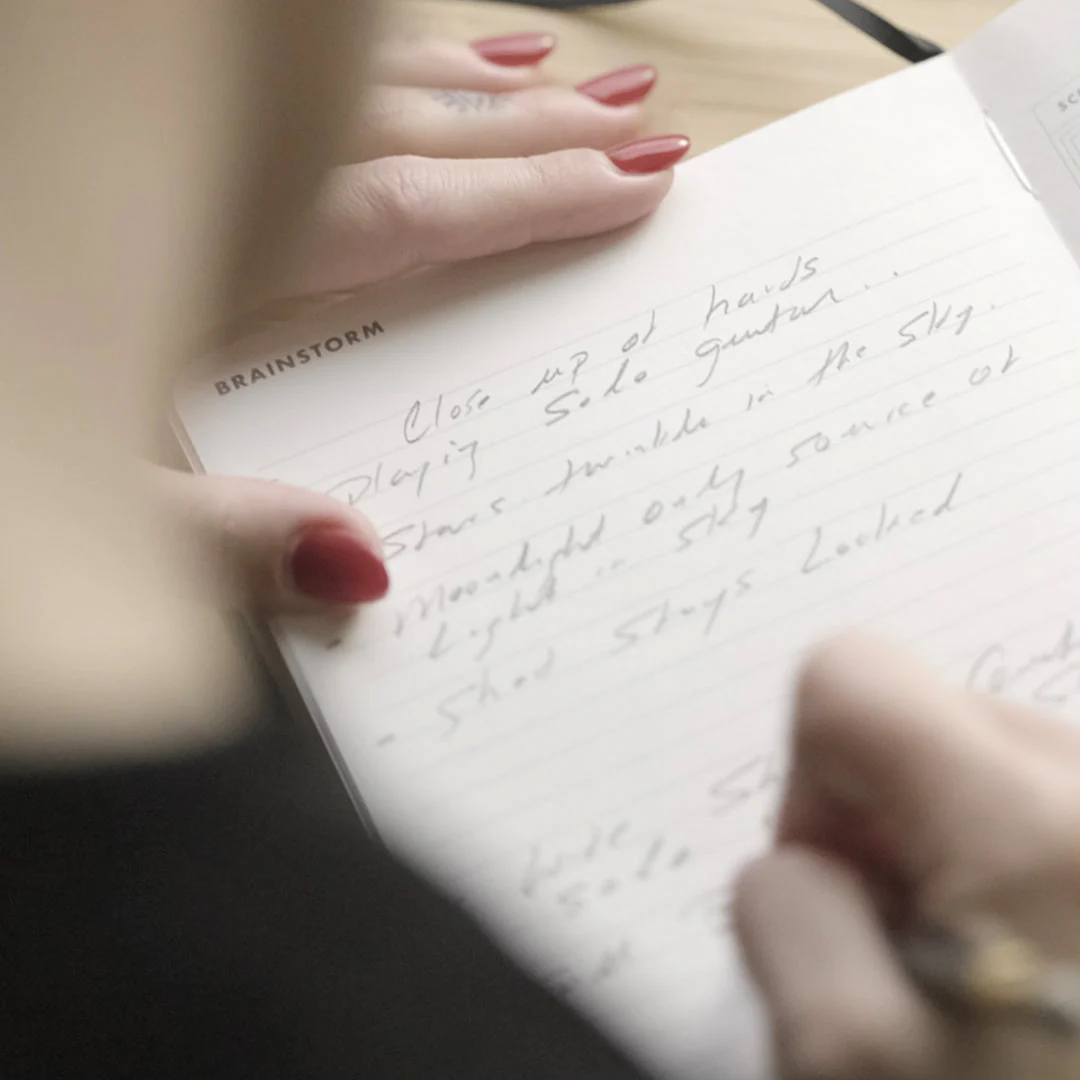 BRAINSTORM
Close up of hands
Playing Solo guitar.
Stars twinkle in the sky.
- Moonlight only source of
Light in sky
- Shot stays Locked
Solo